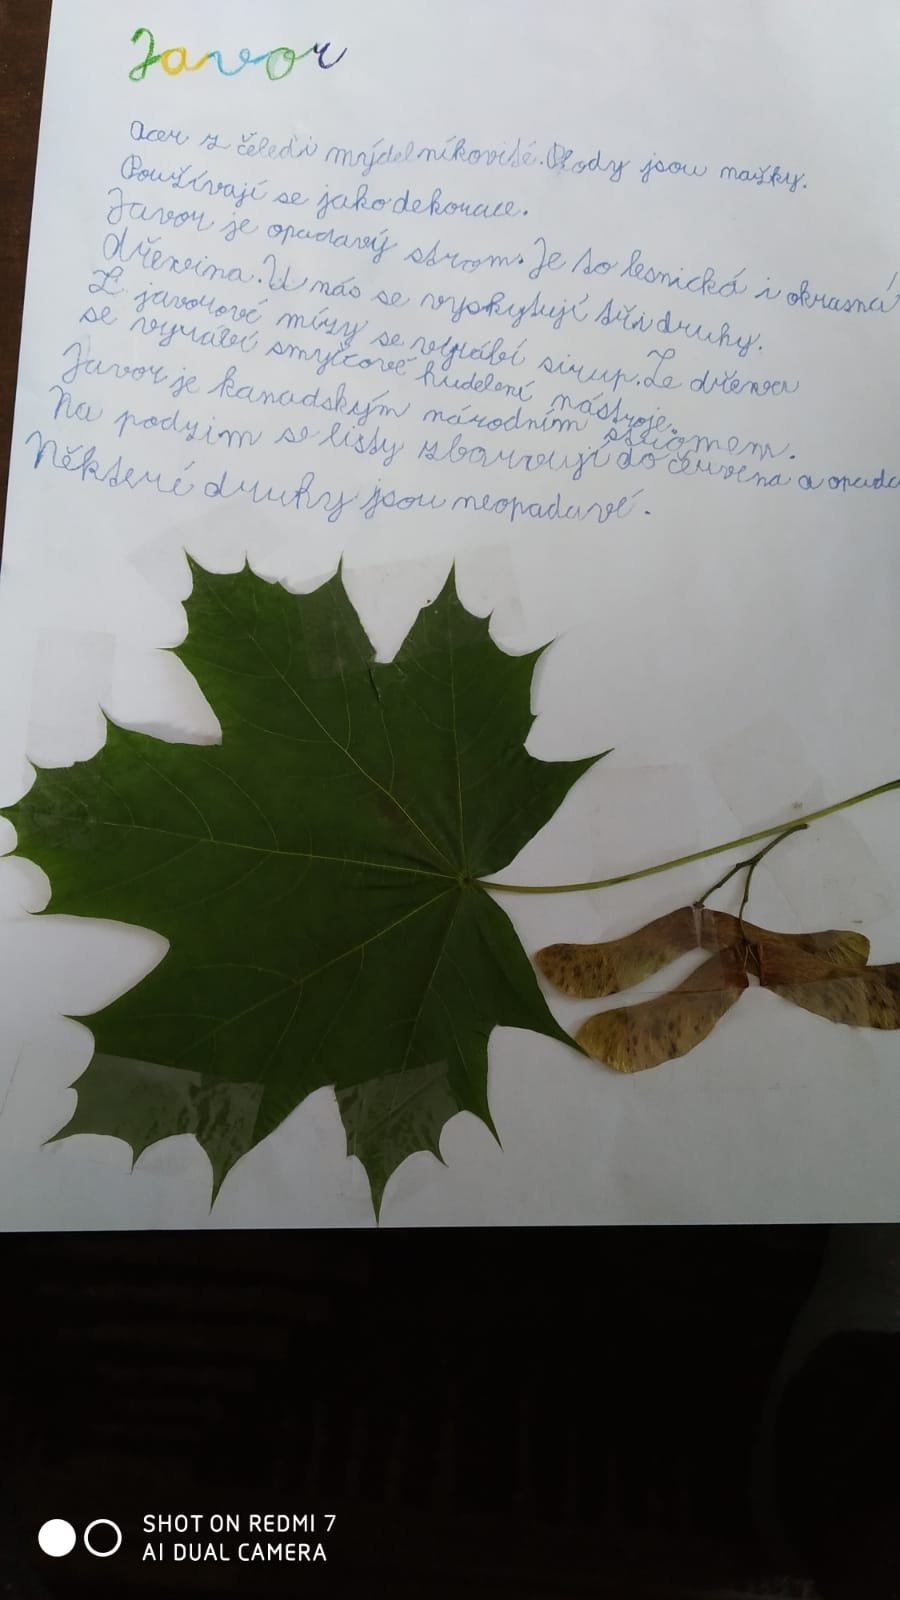 Javor
Acer z čeledi mýdelníkovité. Plody jsou nažky.
Používají se jako dekorace.
Javor je opadavý strom. Je to lesnická i okrasná
dřevina. U nás se vyskytují tři druhy.
Z javorové mízy se vyrábí sirup. Ze dřeva
se vyrábí smyčcové hudební nástroje.
Javor je kanadským národním stromem.
Na podzim se listy zbarvují do červena a opada
Některé druhy jsou neopadavé.
SHOT ON REDMI 7
AI DUAL CAMERA